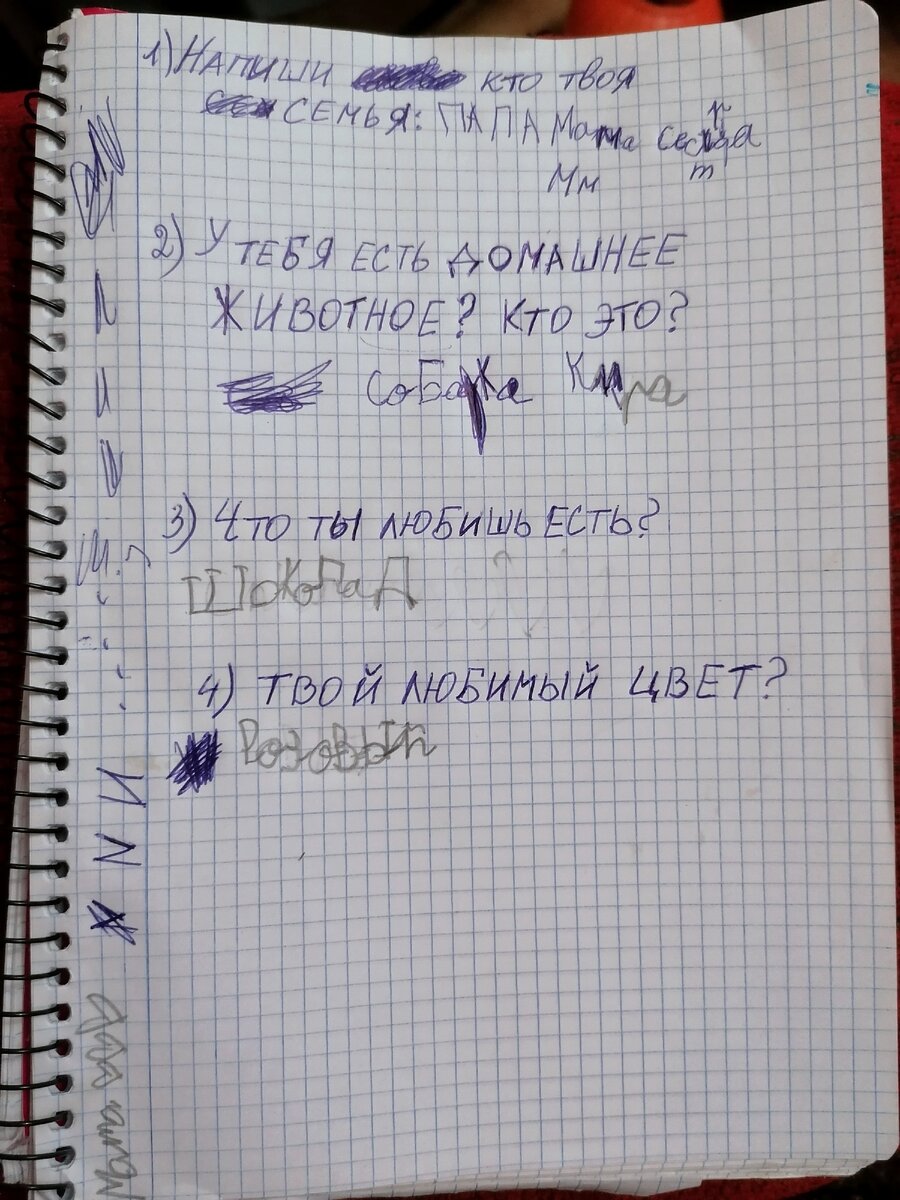 1) НАПИШИ КТО ТВОЯ
СЕМЬЯ: ПАПА Мама сестра
Мм т
2) У ТЕБЯ ЕСТЬ ДОМАШНЕЕ
ЖИВОТНОЕ? КТО ЭТО?
соБака Кира
3) ЧТО ТЫ ЛЮБИШЬ ЕСТЬ?
ШоКоЛаД
4) ТВОЙ ЛЮБИМЫЙ ЦВЕТ?
Розовый